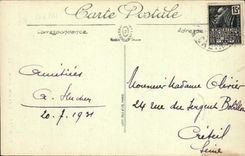 Carte Postale
15
Correspondance
Adresse
Amitiés
Monsieur Madame Olivier
20-7-1931
24 rue des Sergent Bobillot
Créteil
Seine